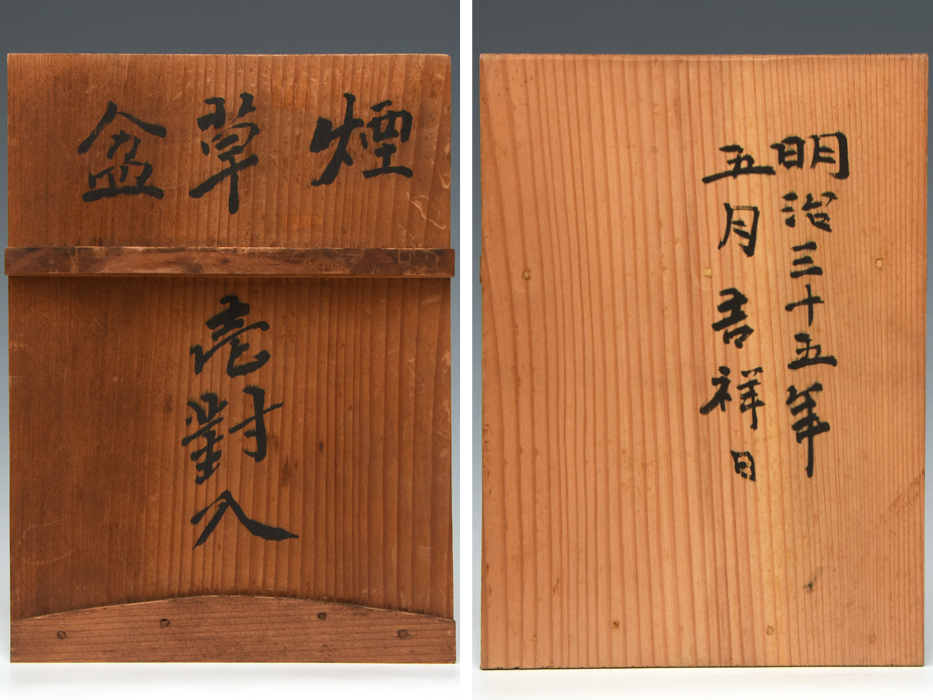 煙草盆
壱對入
明治三十五年
五月吉祥日